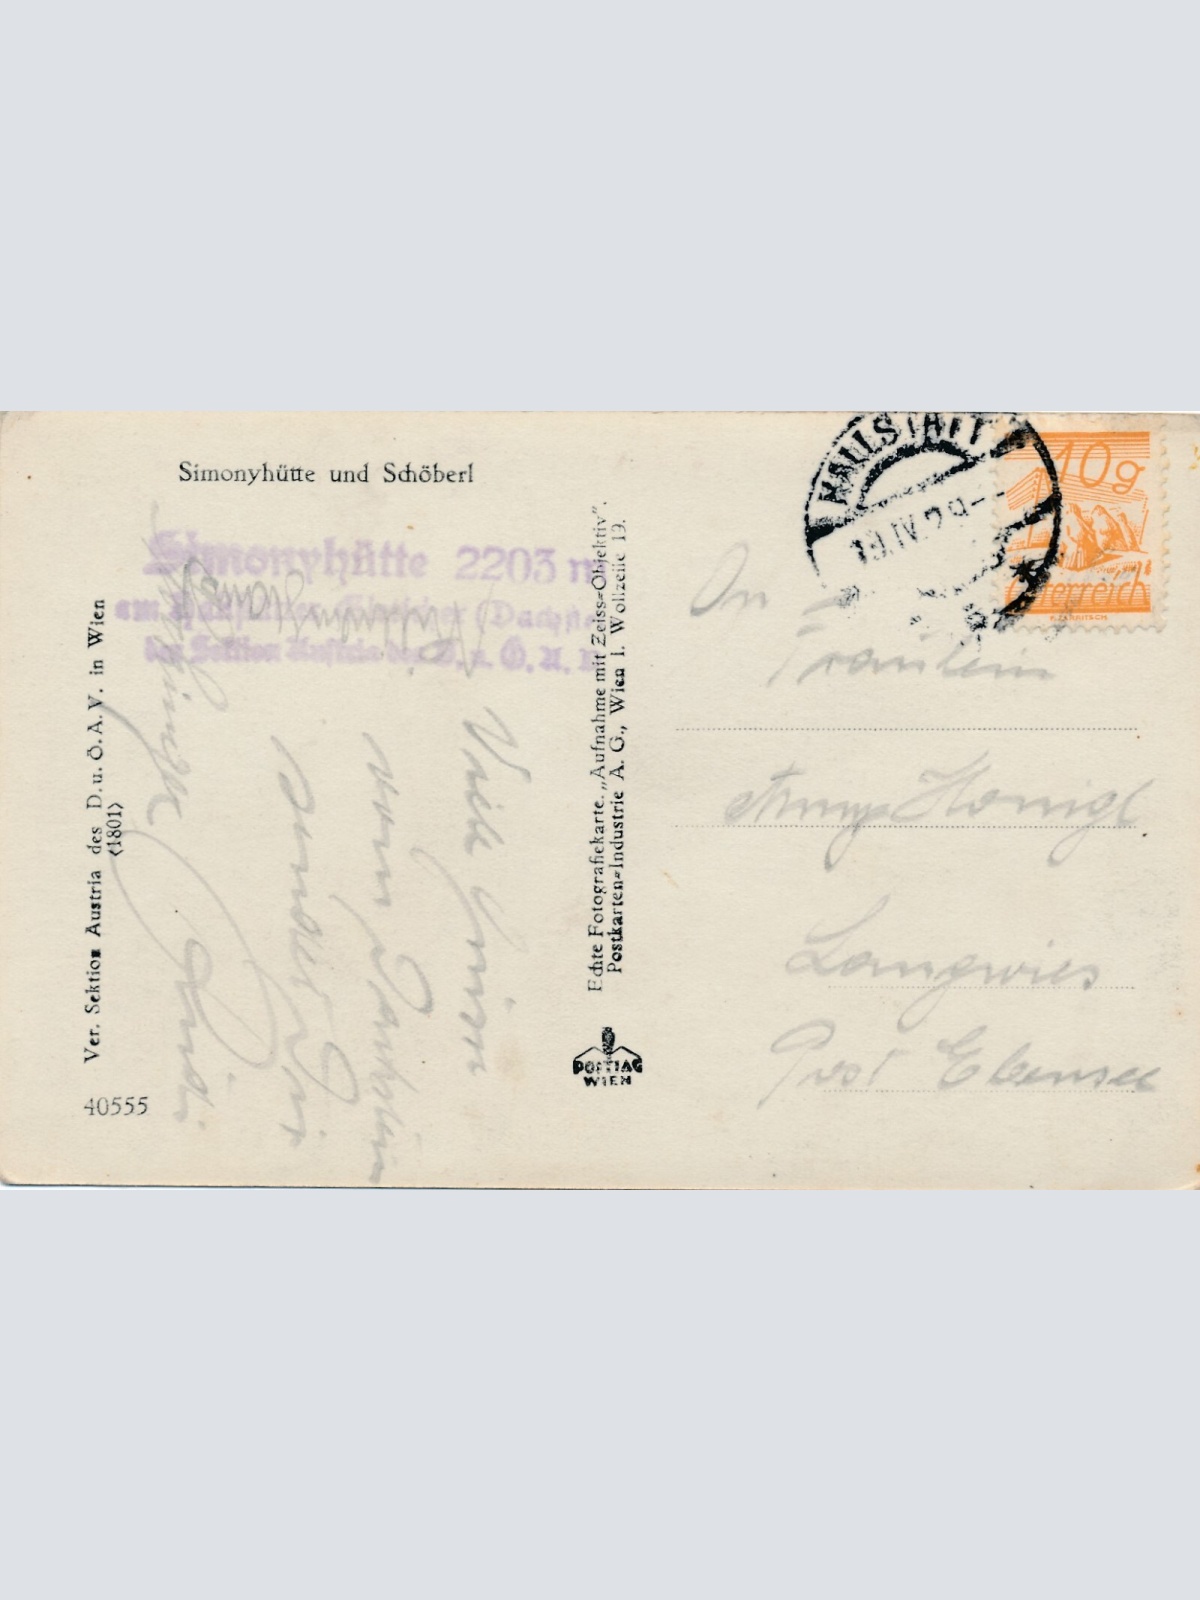 Simonyhütte und Schöberl
Simonyhütte 2203 m
der Sektion Austria des D. u. Ö. A. V.
Ver. Sektion Austria des D. u. Ö. A. V. in Wien
(1801)
40555
Viele Grüsse
vom Dachstein
sendet Dir
Echte Fotografiekarte. „Aufnahme mit Zeiss=Objektiv".
Postkarten=Industrie A. G., Wien I. Wollzeile 19.
POSTIAG
WIEN
HALLSTATT
10g
Österreich
An
Fräulein
Honigl
Langwies
Post Ebensee